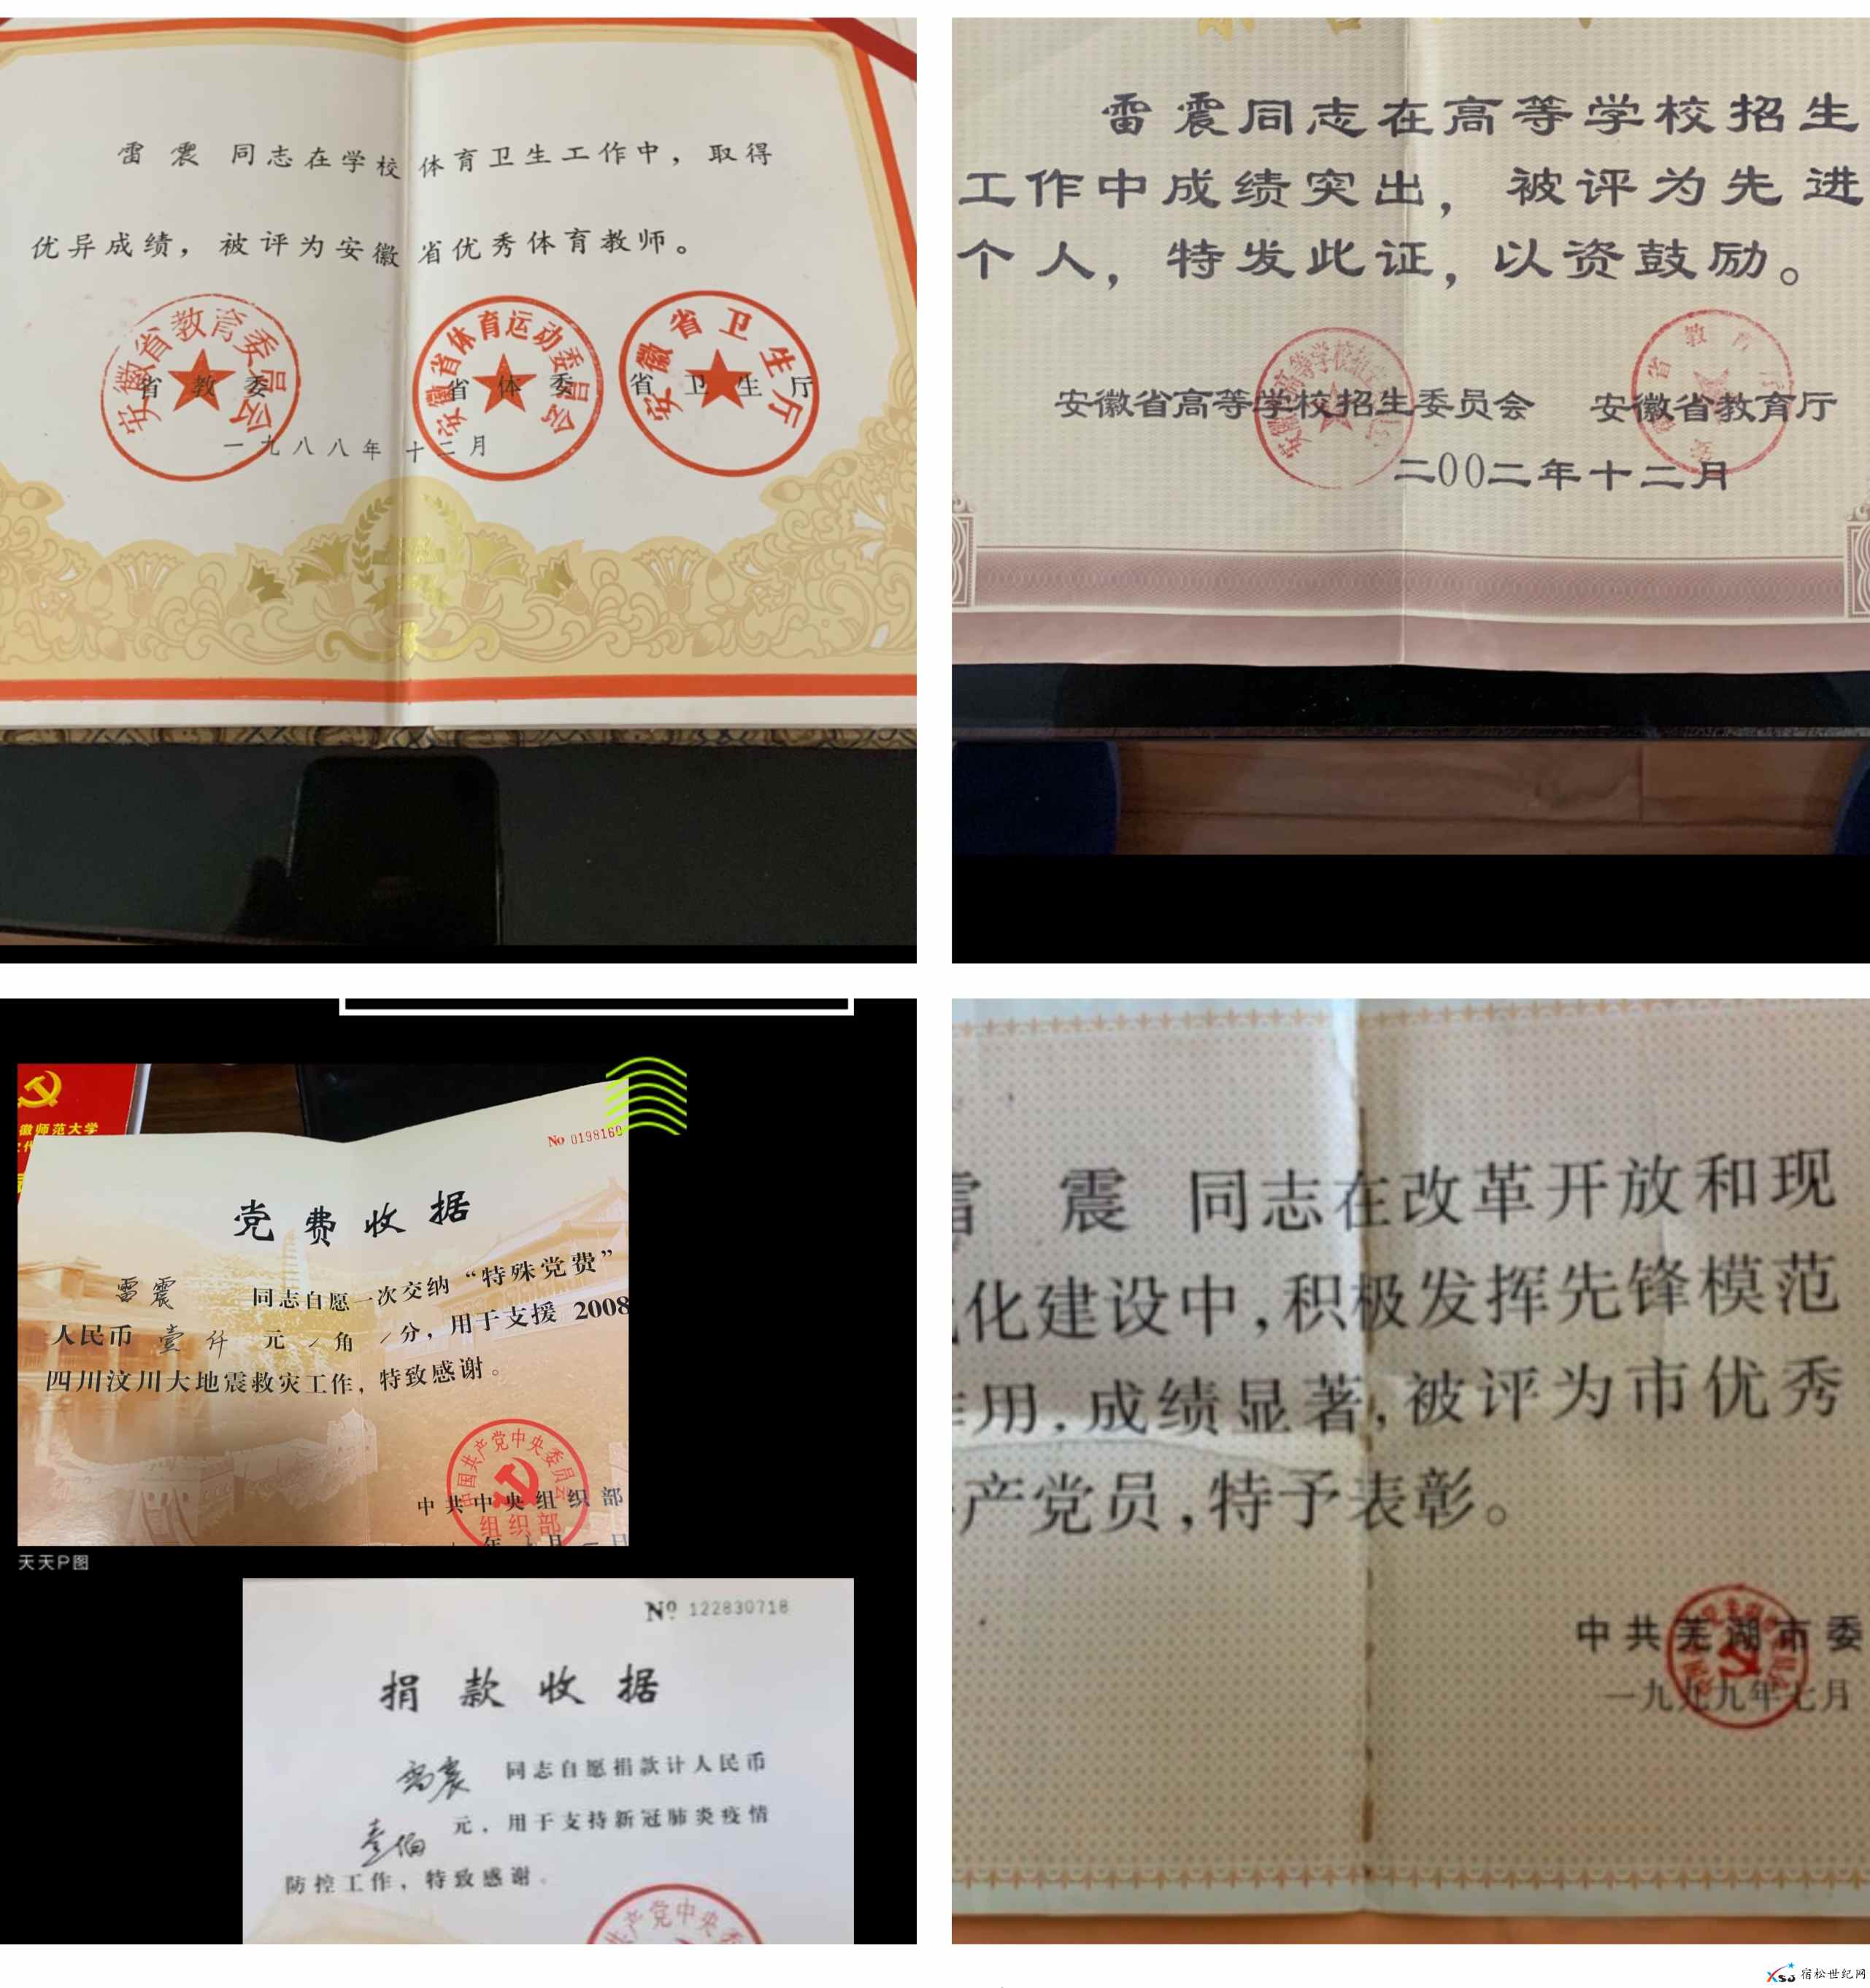 雷震同志在学校体育卫生工作中，取得
优异成绩，被评为安徽省优秀体育教师。
安徽省教育委员会
安徽省体育运动委员会
安徽省卫生厅
省教委 省体委 省卫生厅
一九八八年十二月
雷震同志在高等学校招生
工作中成绩突出，被评为先进
个人，特发此证，以资鼓励。
安徽省高等学校招生委员会 安徽省教育厅
安徽省教育厅
二00二年十二月
徽师范大学
No 0198160
党费收据
雷震 同志自愿一次交纳“特殊党费”
人民币 壹仟 元/角/分，用于支援 2008
四川汶川大地震救灾工作，特致感谢。
中国共产党中央委员会
组织部
中共中央组织部
天天P图
No 122830718
捐款收据
雷震 同志自愿捐款计人民币
壹佰 元，用于支持新冠肺炎疫情
防控工作，特致感谢。
共产党中央委
雷 震 同志在改革开放和现
化建设中，积极发挥先锋模范
作用，成绩显著，被评为市优秀
产党员，特予表彰。
中共芜湖市委
一九九九年七月
宿松世纪网